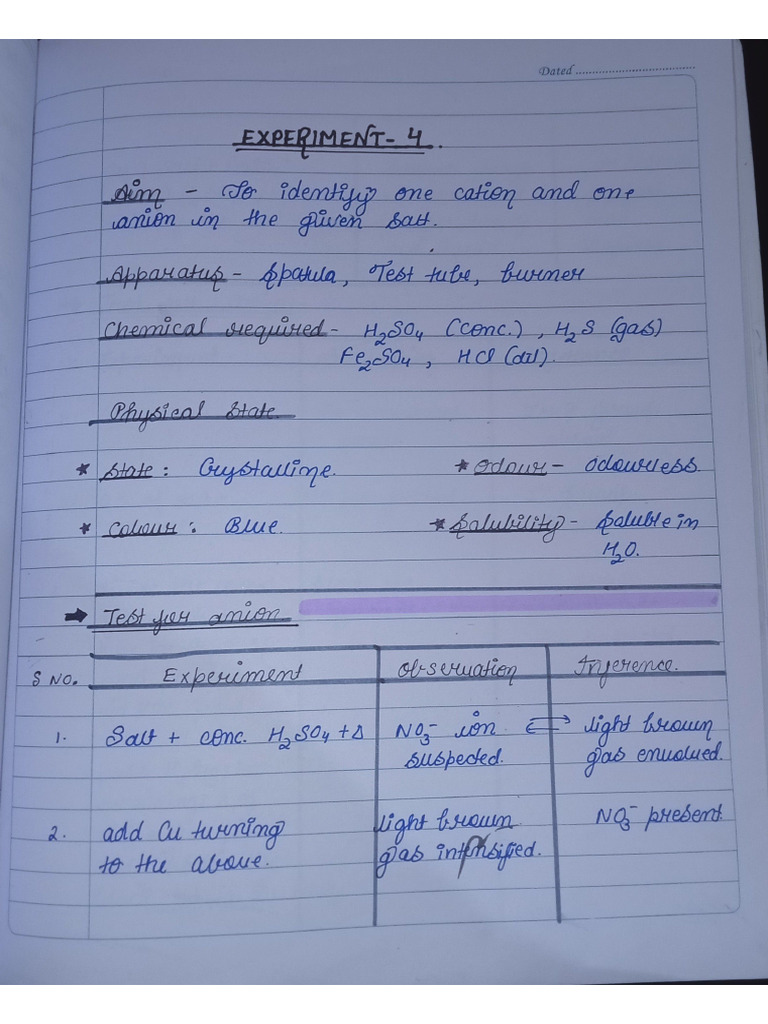 Dated ....................................
EXPERIMENT - 4.
Aim - To identify one cation and one
anion in the given salt.
Apparatus - Spatula, Test tube, burner
Chemical required - H₂SO₄ (conc.), H₂S (gas)
Fe₂SO₄, HCl (dil).
Physical State
* State : Crystalline. * Odour - Odourless.
* Colour : Blue. * Solubility - Soluble in
H₂O.
→ Test for anion
S NO. Experiment Observation Inference.
1. Salt + conc. H₂SO₄ + Δ NO₃⁻ ion ⟷ light brown
suspected. gas envolved.
2. add Cu turning light brown NO₃⁻ present
to the above. gas intensified.